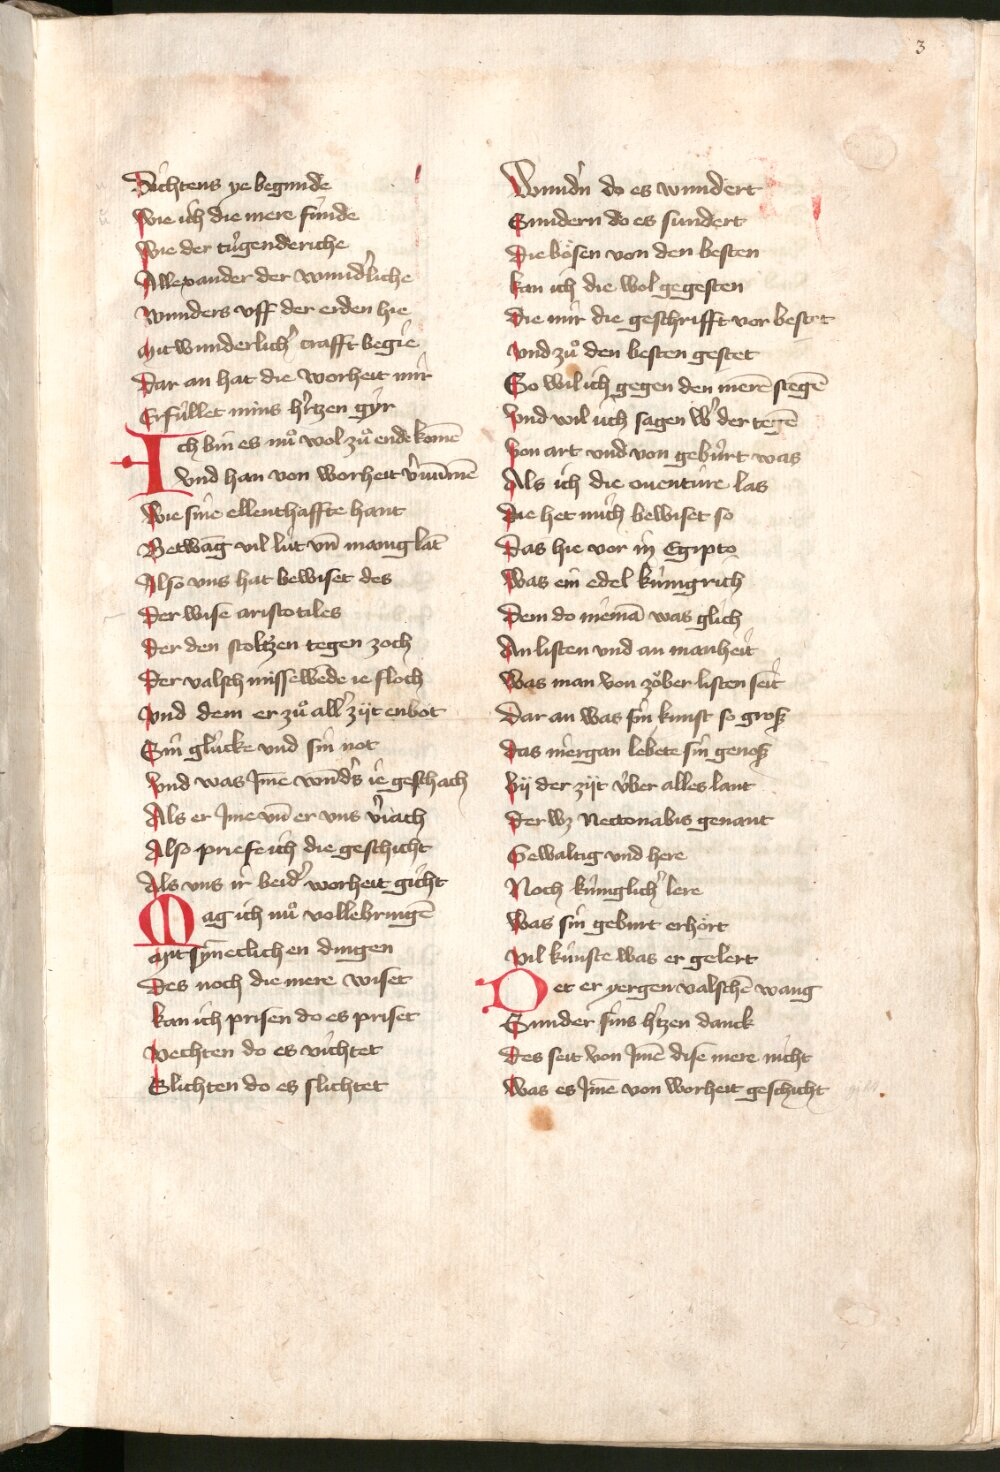 3
Dichtens ye begunde
Wie ich die mere fúnde
Wie der túgenderiche
Allexander der wundʼliche
Wunders vff der erden hie
Mit wunderlichʼ crafft begie
Dar an hat die worheit mir
Erfúllet mins hʼtzen gẏr
Ich bin es nuͦ wol zuͦ ende komē
Vnd han von worheit vʼnūmē
Wie sine ellenthaffte hant
Betwāg vil lút vn̄ manig lāt
Also vns hat bewiset des
Der wise aristotiles
Der den stoltzen tegen zoch
Der valsch missewēde ie floch
Vnd dem er zuͦ allʼ zÿt enbot
Sin glúcke vnd sin not
Vnd was Jme wūdʼs ie geschach
Als er Jme vn̄ er vns vʼiach
Also priefe ich die geschicht
Als vns ir beidʼ worheit gicht
Mag ich nuͦ vollebringē
Mit sẏneclichen dingen
Des noch die mere wiset
Kan ich prisen do es priset
Vechten do es vichtet
Slichten do es slichtet
Wundʼn do es wundert
Sundern do es sundert
Die boͤsen von den besten
Kan ich die wol gegesten
Die mir die geschrifft vor bestet
Vnd zuͦ den besten gestet
So wil ich gegen den merē stegē
Vnd wil uch sagen wʼ der tegē
Von art vnd von gebúrt was
Als ich die ouentúre las
Die het mich bewiset so
Das hie vor in Egipto
Was ein edel kúnigrich
Dem do niemā was glich
An listen vnd an manheit
Was man von zoͮber listen seit
Dar an was sin kunst so groß
Das niergan lebete sin genoß
Bÿ der zÿt úber alles lant
Der wz Nectonabis genant
Gewaltig vnd here
Noch kúniglichʼ lere
Was sin geburt erhoͤrt
Vil kúnste was er gelert
Det er yergen valschē wang
Sunder sins hʼtzen danck
Des seit von Jmē dise mere nicht
Was es Jme von worheit geschicht